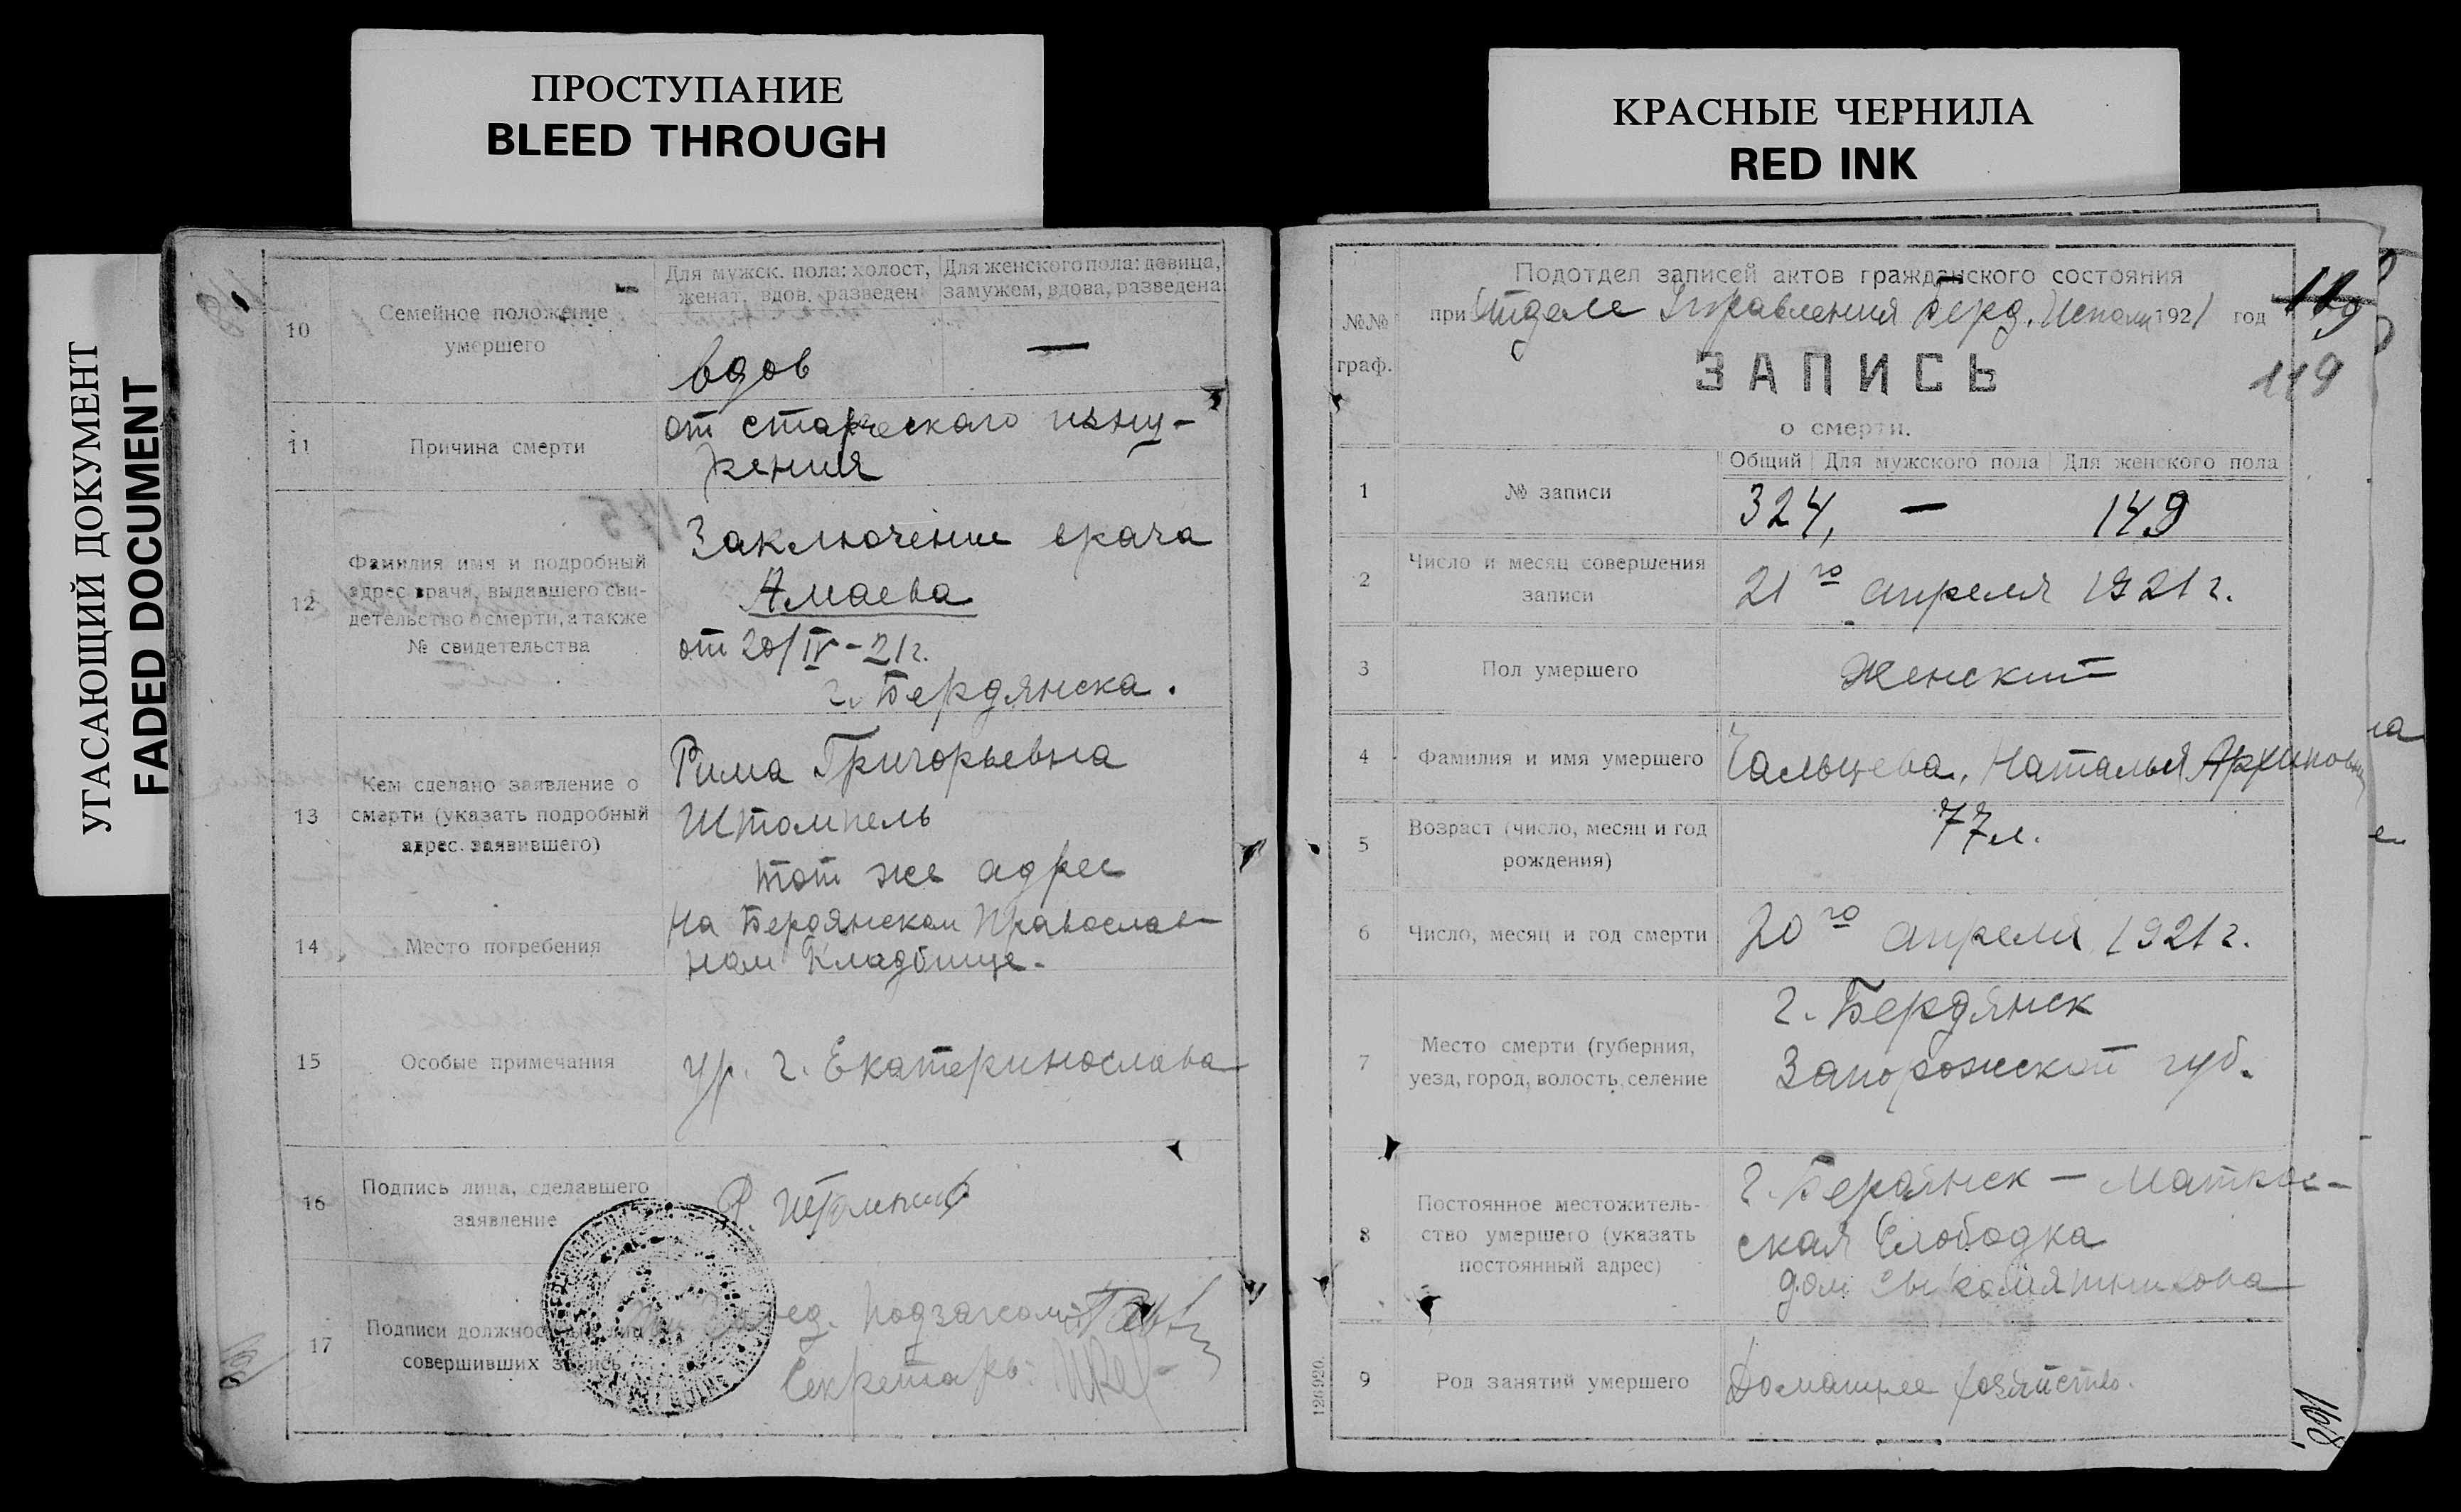 ПРОСТУПАНИЕ
BLEED THROUGH
КРАСНЫЕ ЧЕРНИЛА
RED INK
УГАСАЮЩИЙ ДОКУМЕНТ
FADED DOCUMENT
10
Семейное положение
умершего
Для мужск. пола: холост,
женат, вдов, разведен
Для женского пола: девица,
замужем, вдова, разведена
вдов
—
11
Причина смерти
от старческого изну-
жения
12
Фамилия имя и подробный
адрес врача, выдавшего сви-
детельство о смерти, а также
№ свидетельства
Заключение врача
Амаева
от 20/IV-21г.
г. Бердянска.
13
Кем сделано заявление о
смерти (указать подробный
адрес. заявившего)
Рима Григорьевна
Штомпель
тот же адрес
14
Место погребения
на Бердянском Православ-
ном Кладбище.
15
Особые примечания
ур. г. Екатеринослава
16
Подпись лица, сделавшего
заявление
Р. Штомпель
17
Подписи должностных лиц
совершивших запись
Завед. Подзагсом
Секретарь:
№№
граф.
Подотдел записей актов гражданского состояния
при Отделе Управления Берд. Исполк 1921 год
119
ЗАПИСЬ
119
о смерти.
1
№ записи
Общий Для мужского пола Для женского пола
324, — 149
2
Число и месяц совершения
записи
21го апреля 1921г.
3
Пол умершего
Женский
4
Фамилия и имя умершего
Чальцева, Наталья Архиповна
5
Возраст (число, месяц и год
рождения)
77л.
6
Число, месяц и год смерти
20го апреля 1921г.
7
Место смерти (губерния,
уезд, город, волость, селение
г. Бердянск
Запорожской губ.
8
Постоянное местожитель-
ство умершего (указать
постоянный адрес)
г. Бердянск — Матрос-
ская Слободка
дом
9
Род занятий умершего
Домашнее хозяйство.
126920.